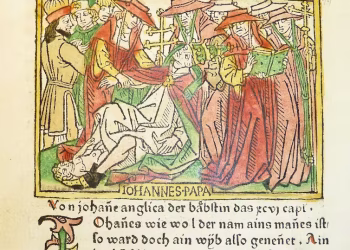 IOHANNES·PAPA
Von johañe anglica der bäbstin das xcvj capl·
Johañes wie wol der nam ains mañes ist
so ward doch ain wÿb also geneñet· Ain